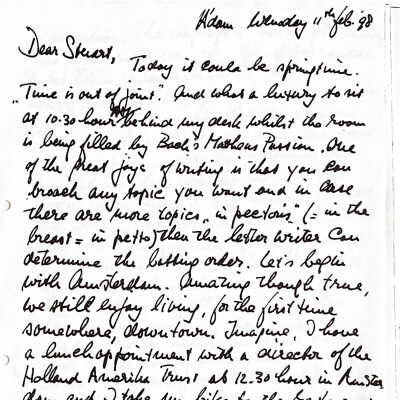 A'dam Wensday 11th feb. '98
Dear Steuart,
Today it could be springtime.
"Time is out of joint". And what a luxury to sit
at 10.30 hour behind my desk whilst the room
is being filled by Bach's Matheus Passion. One
of the great joys of writing is that you can
broach any topic you want and in case
there are more topics "in pectoris" (= in the
breast = in petto) then the letter writer can
determine the batting order. Let's begin
with Amsterdam. Amazing though true,
we still enjoy living, for the first time
somewhere, downtown. Imagine, I have
a lunch appointment with a director of the
Holland Amerika Trust at 12.30 hour in Amster
dam and I take my bike to the